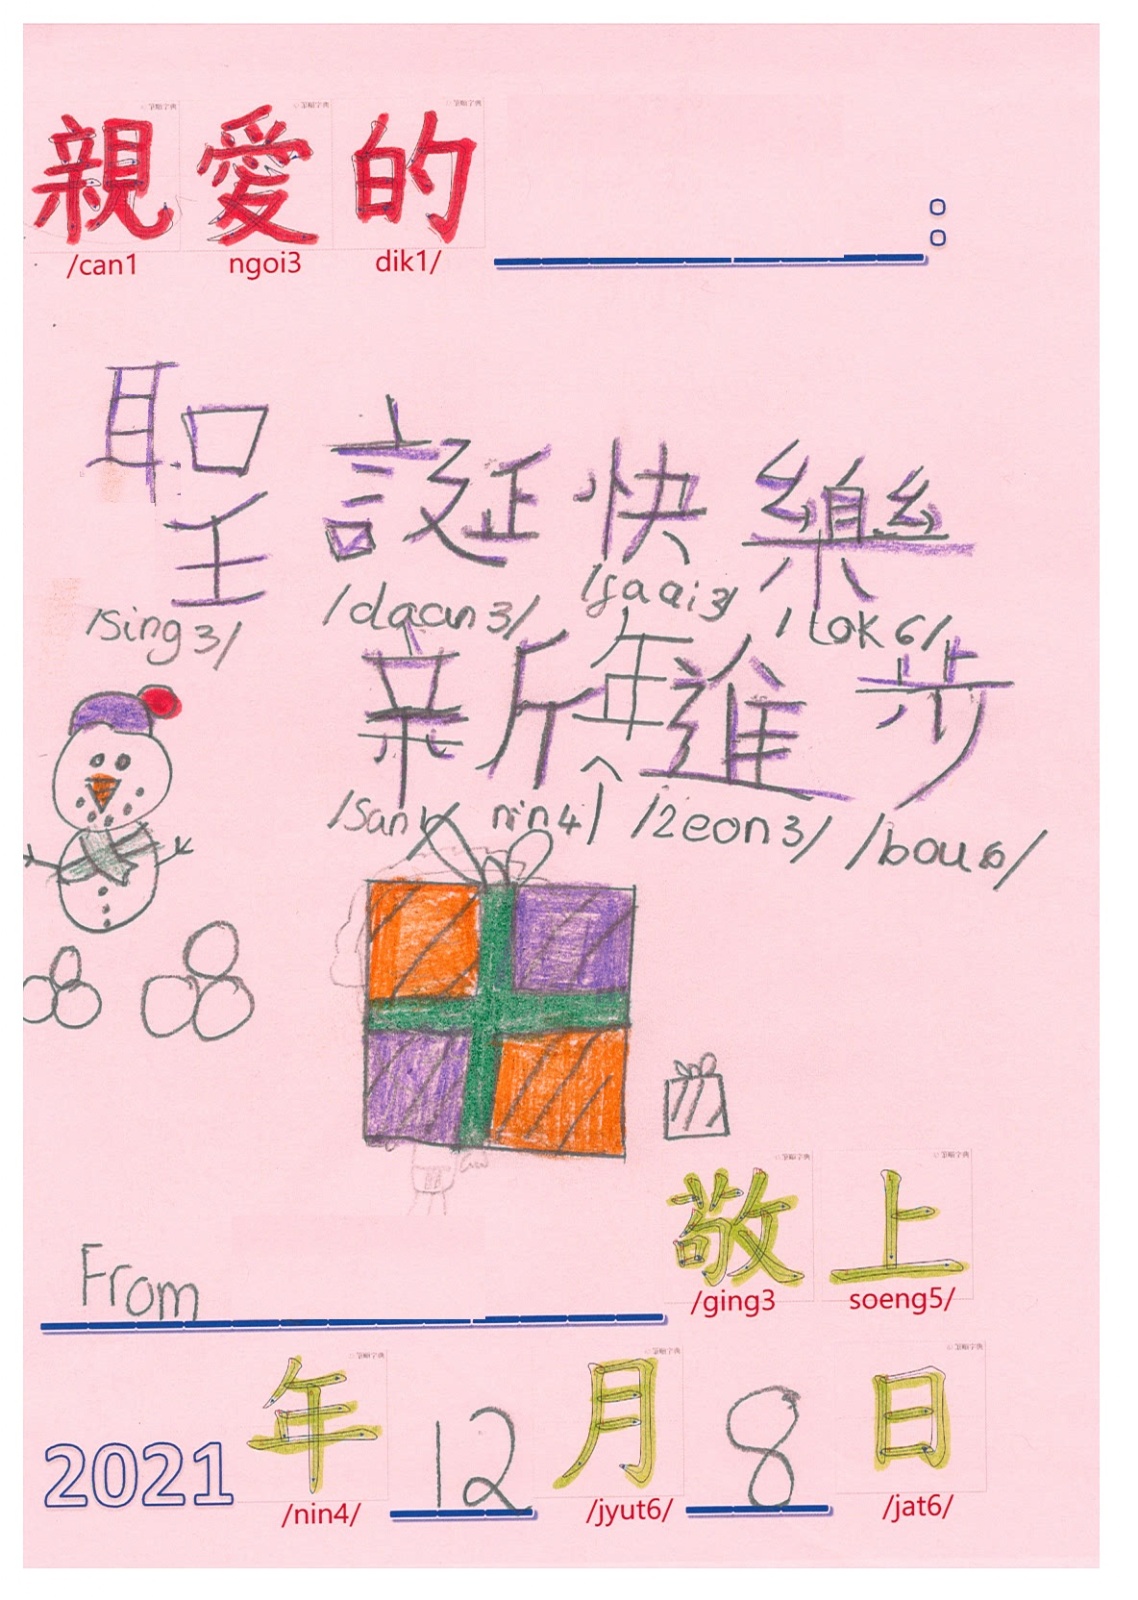 親愛的 :
/can1 ngoi3 dik1/
聖誕快樂
/sing3/ /daan3/ /faai3/ /lok6/
新年進步
/san1 nin4/ /zeon3/ /bou6/
敬上
/ging3 soeng5/
From
2021年12月8日
/nin4/ /jyut6/ /jat6/